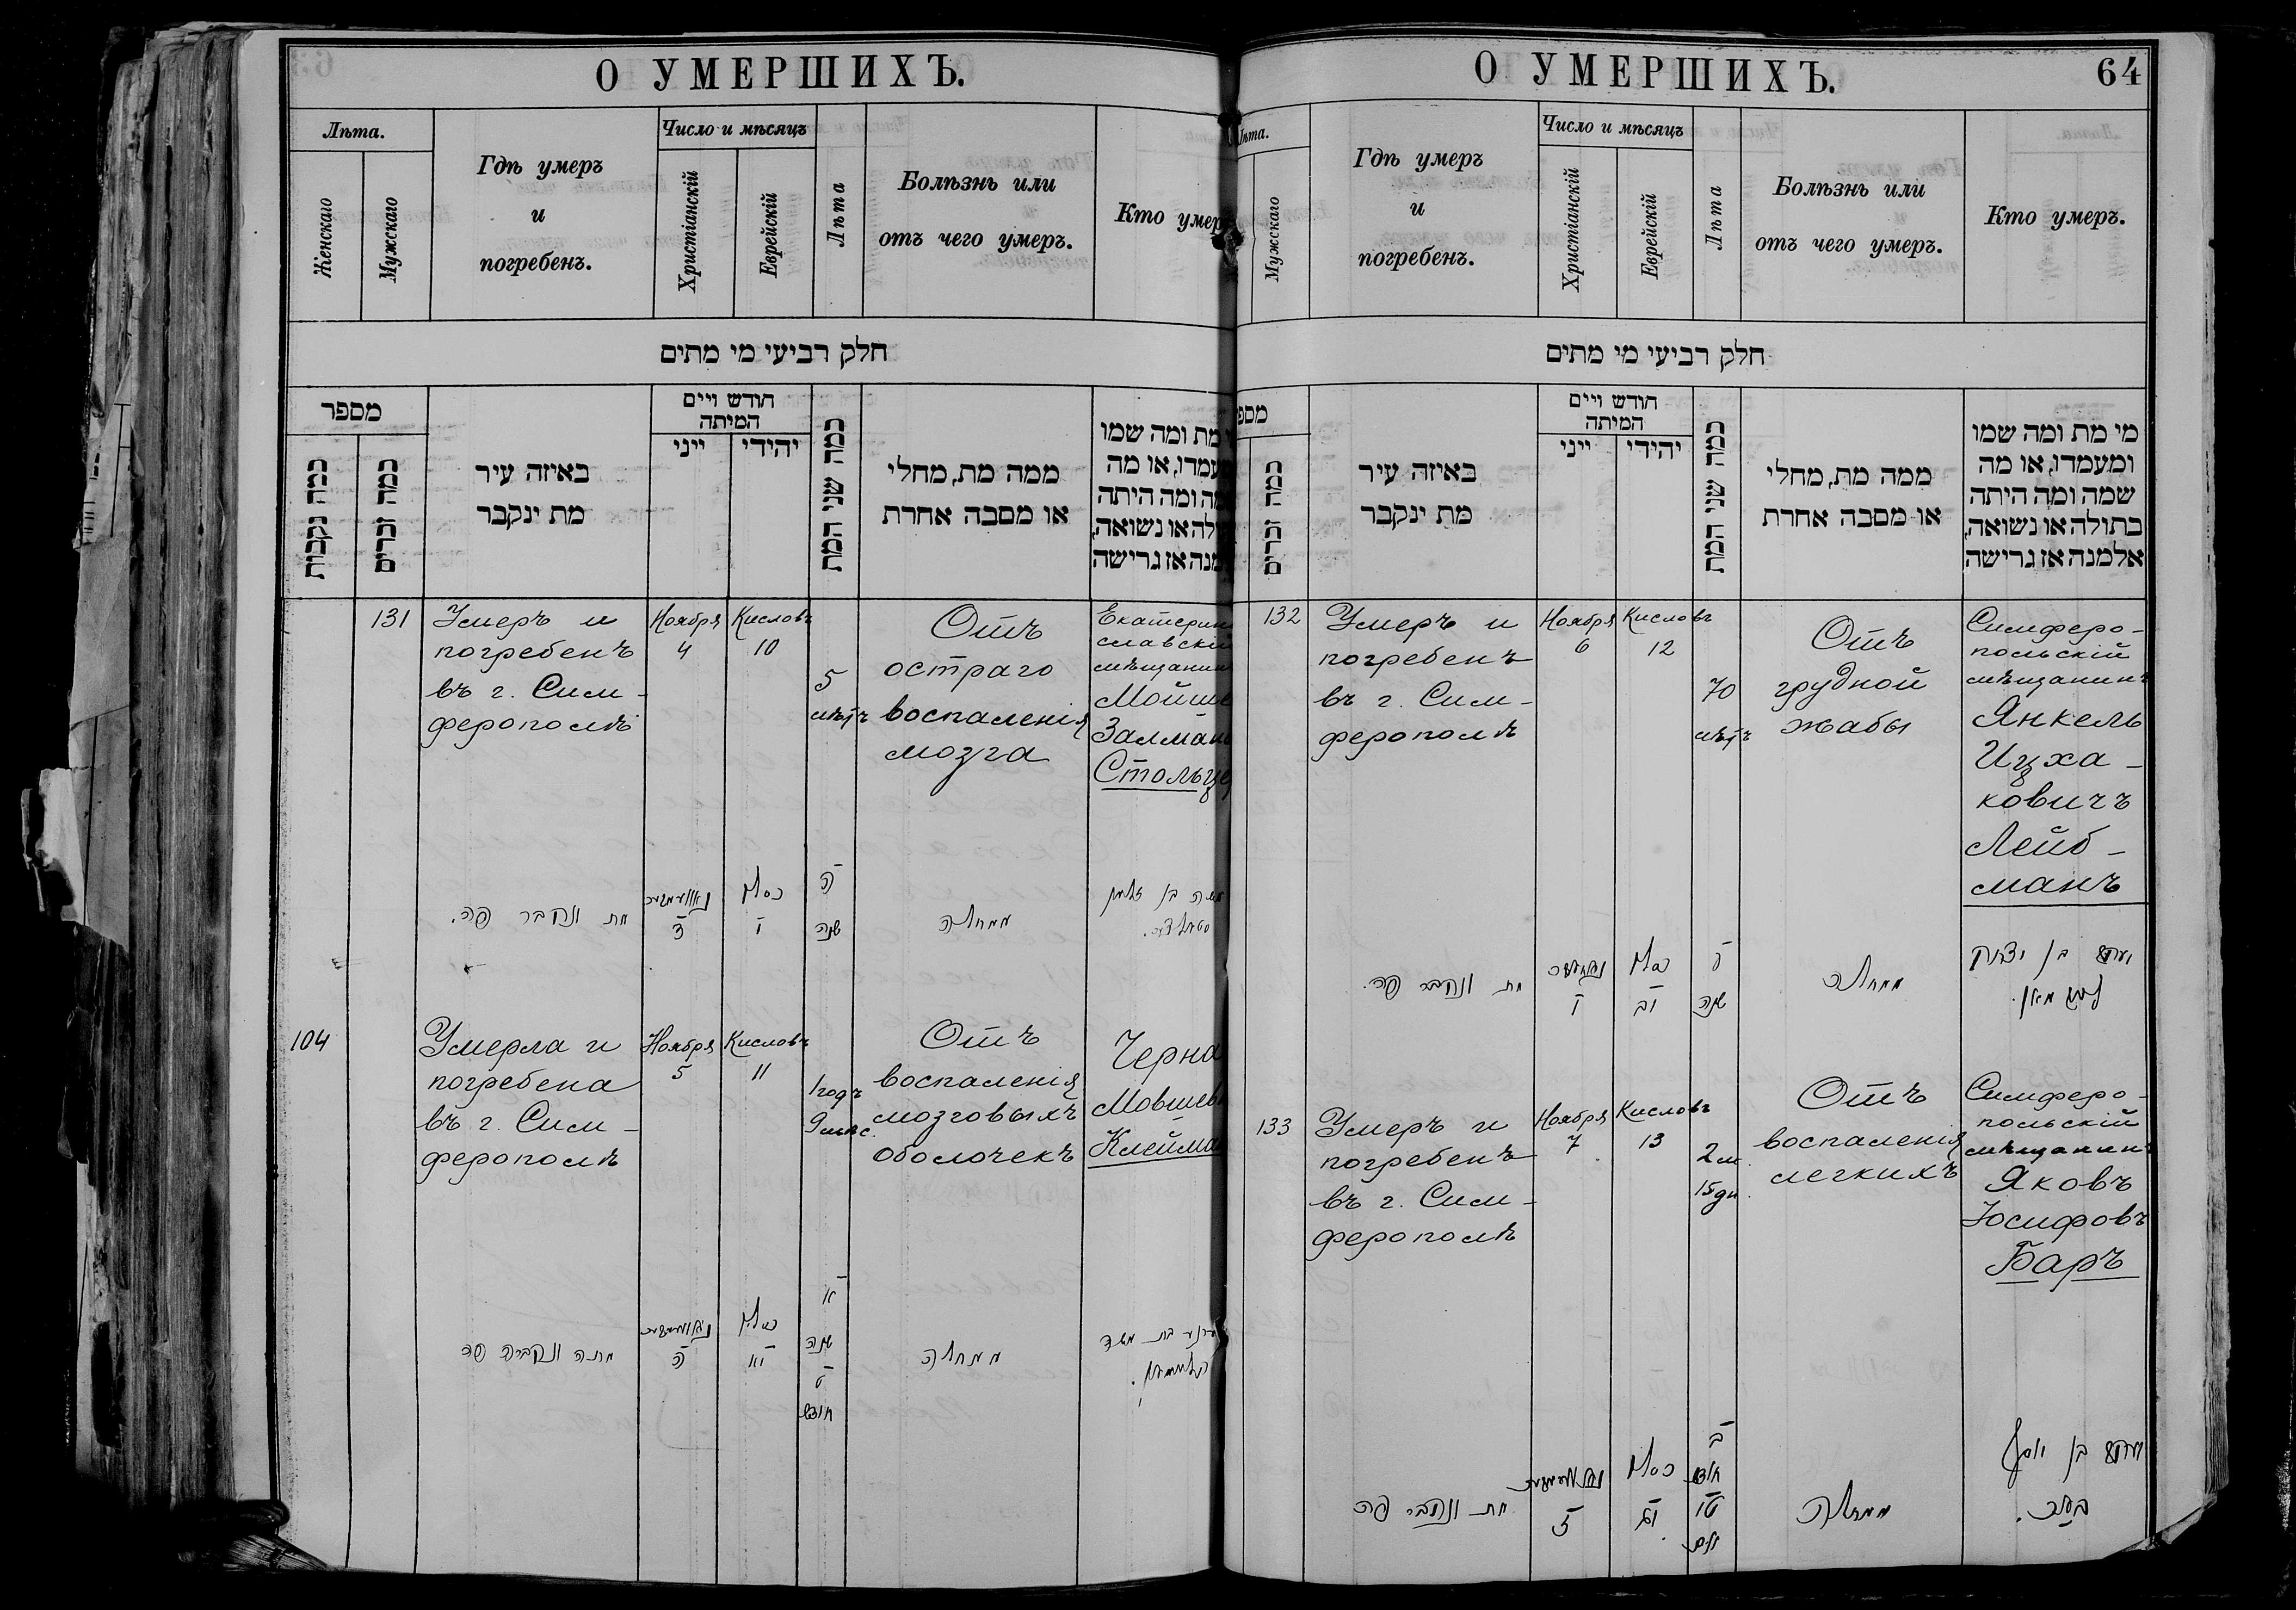 О УМЕРШИХЪ.
Лѣта.
Женскаго
Мужскаго
Гдѣ умеръ
и
погребенъ.
Число и мѣсяцъ
Христіанскій
Еврейскій
Лѣта
Болѣзнь или
отъ чего умеръ.
Кто умер
חלק רביעי מי מתים
מספר
כמה נקבות
כמה זכרים
באיזה עיר
מת ינקבר
חודש ויים
המיתה
ייני
יהידי
כמה שני המת
ממה מת, מחלי
או מסבה אחרת
מת ומה שמו
עמדו, או מה
מה ומה היתה
לה או נשואה,
מנה אז גרישה
131
Умеръ и
погребенъ
въ г. Сим-
ферополѣ
Ноября
4
Кисловъ
10
5
лѣтъ
Отъ
остраго
воспаленія
мозга
Екатерин
славскій
мѣщанин
Мойше
Залман
Стольце
מת ונקבר פה.
כסלו
י
ה
שנה
ממחלה
משה בן זלמן
104
Умерла и
погребена
въ г. Сим-
ферополѣ
Ноября
5
Кисловъ
11
1 годъ
9 мѣс.
Отъ
воспаленія
мозговыхъ
оболочекъ
Черна
Мовшев
Клейма
מתה ונקברה פה
ה
כסלו
יא
א
שנה
ט
חודש
ממחלה
О УМЕРШИХЪ.
64
ѣта.
Мужскаго
Гдѣ умеръ
и
погребенъ.
Число и мѣсяцъ
Христіанскій
Еврейскій
Лѣта
Болѣзнь или
отъ чего умеръ.
Кто умеръ.
חלק רביעי מי מתים
מספ
כמה זכרים
באיזה עיר
מת ינקבר
חודש ויים
המיתה
ייני
יהידי
כמה שני המת
ממה מת, מחלי
או מסבה אחרת
מי מת ומה שמו
ומעמדו, או מה
שמה ומה היתה
בתולה או נשואה,
אלמנה אז גרישה
132
Умеръ и
погребенъ
въ г. Сим-
ферополѣ
Ноября
6
Кисловъ
12
70
лѣтъ
Отъ
грудной
жабы
Симферо-
польскій
мѣщанинъ
Янкель
Ицха-
ковичъ
Лейб-
манъ
מת ונקבר פה.
ו
כסלו
יב
שנה
ממחלה
יעקב בן יצחק
133
Умеръ и
погребенъ
въ г. Сим-
ферополѣ
Ноября
7
Кисловъ
13
2 м.
15 дн.
Отъ
воспаленія
легкихъ
Симферо-
польскій
мѣщанинъ
Яковъ
Юсифовъ
Баръ
מת ונקבר פה
ז
כסלו
יג
ב
חודש
טו
ממחלה
יעקב בן יוסף